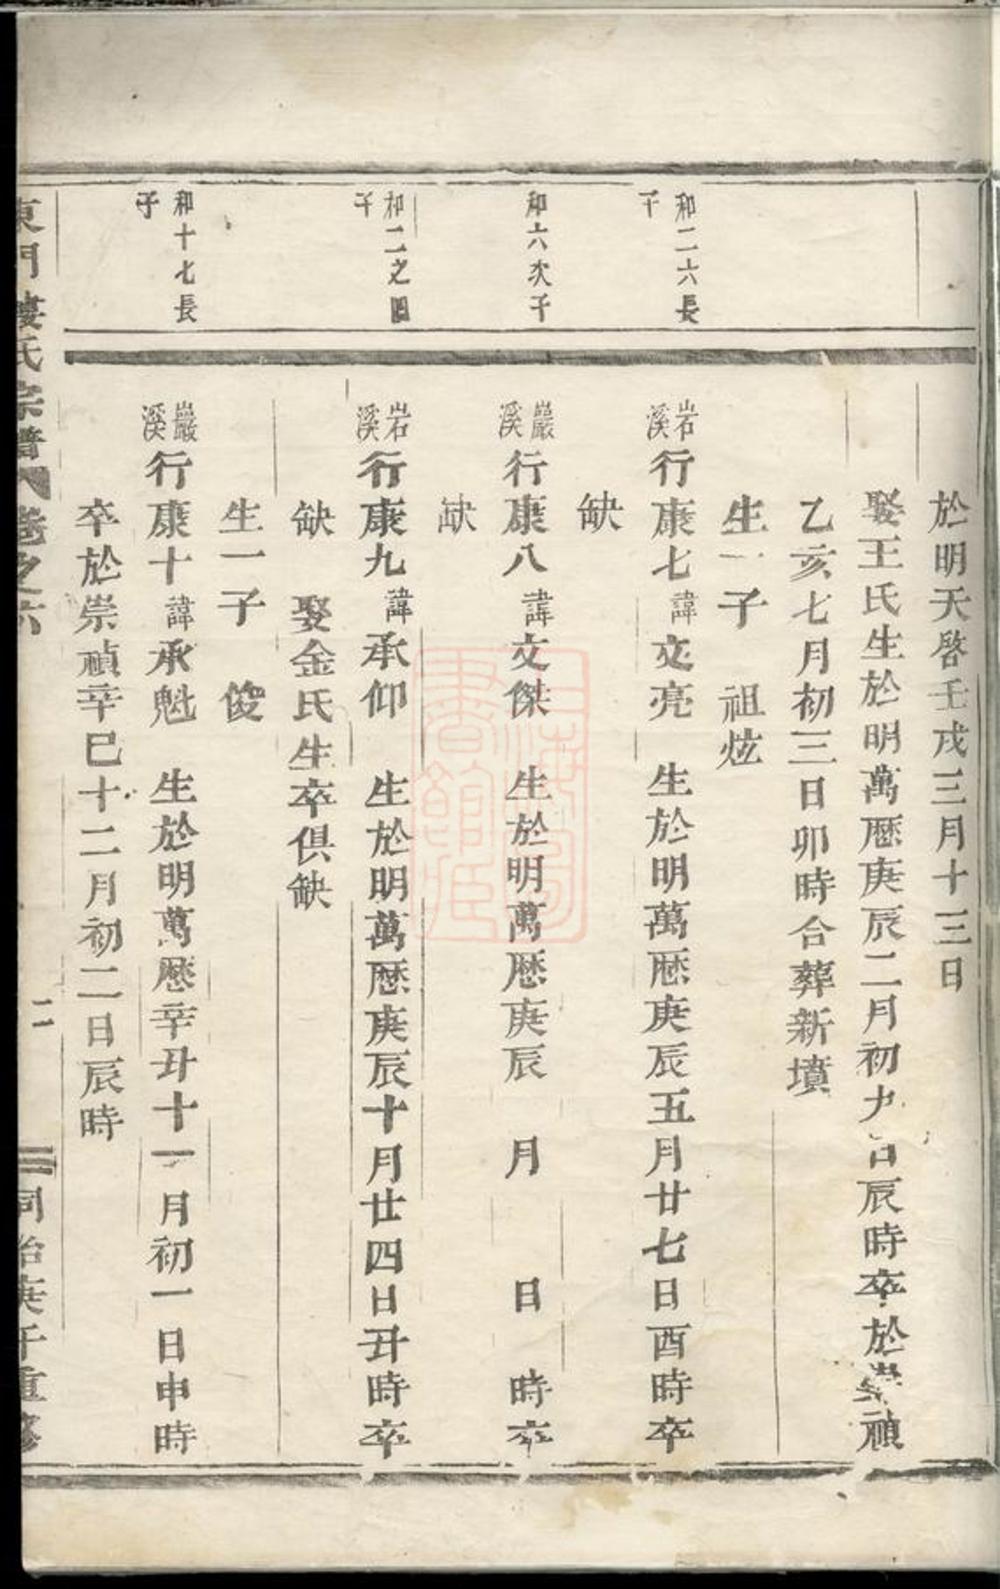 於明天啓壬戌三月十三日
娶王氏生於明萬歷庚辰二月初九日辰時卒於崇禎
乙亥七月初三日卯時合葬新墳
生一子　祖炫
和二六長
子
岩溪行康七諱文亮　生於明萬歷庚辰五月廿七日酉時卒
缺
和六次子
巖溪行康八諱文傑　生於明萬歷庚辰　月　　日　時卒
缺
和二之四
子
岩溪行康九諱承仰　生於明萬歷庚辰十月廿四日丑時卒
缺　娶金氏生卒俱缺
生一子　俊
和十七長
子
巖溪行康十諱承魁　生於明萬歷辛丑十一月初一日申時
卒於崇禎辛巳十二月初二日辰時
東門婁氏宗譜　卷之六　二　同治庚午重修
上海圖書館藏